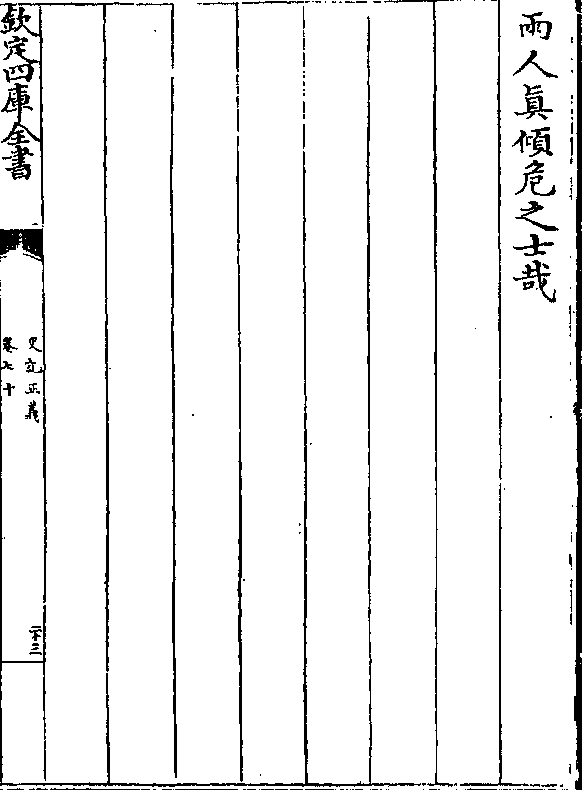 兩人眞傾危之士哉
欽定四庫全書
史記正義
卷七十
二十三